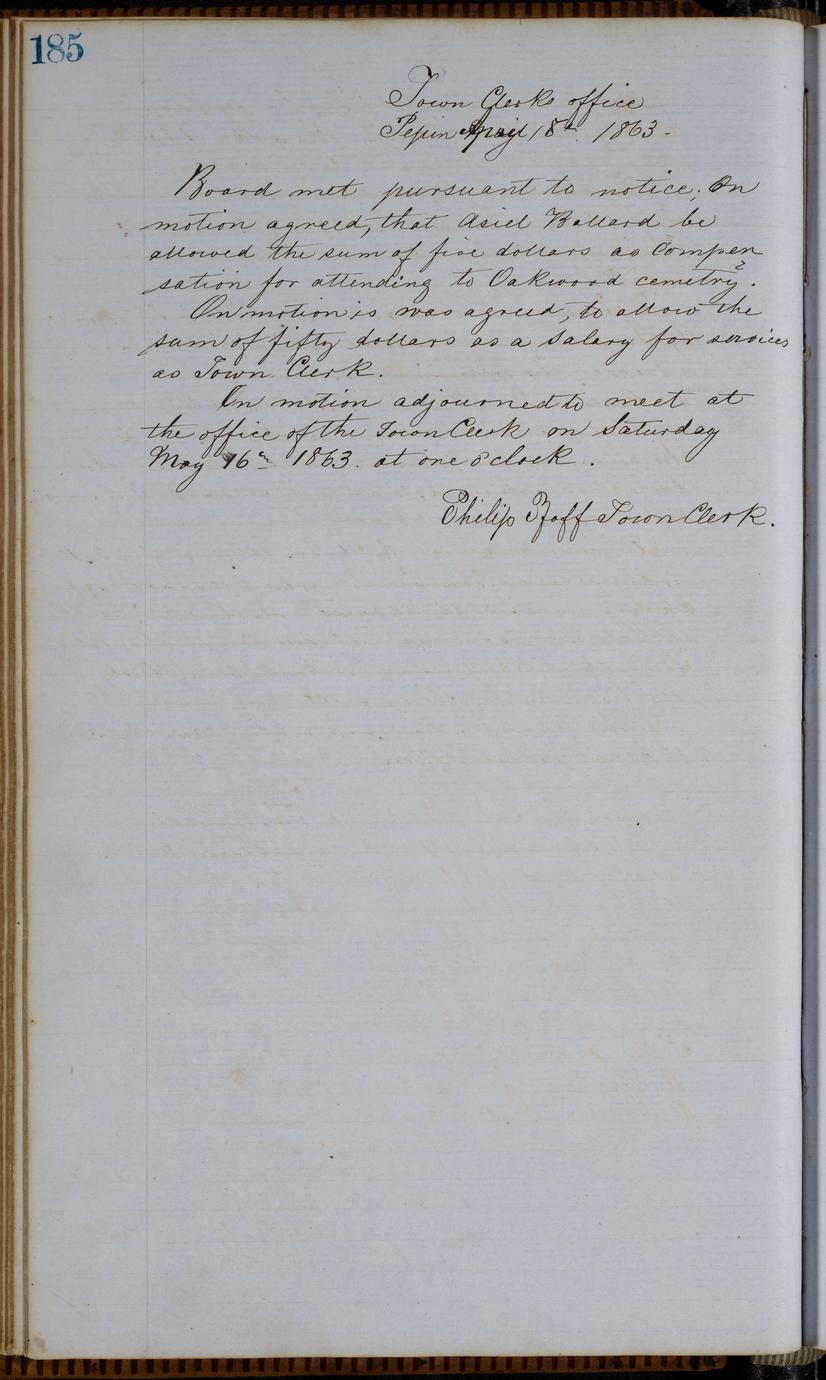 185
Town Clerks office
Pepin April 18th 1863-
Board met pursuant to notice; On
motion agreed, that Asiel Ballard be
allowed the sum of five dollars as compen
sation for attending to Oakwood cemetry.
On motion is was agreed, to allow the
sum of fifty dollars as a Salary for services
as Town Clerk.
On motion adjourned to meet at
the office of the Town Clerk on Saturday
May 16th 1863. at one o'clock.
Philip Pfaff Town Clerk.